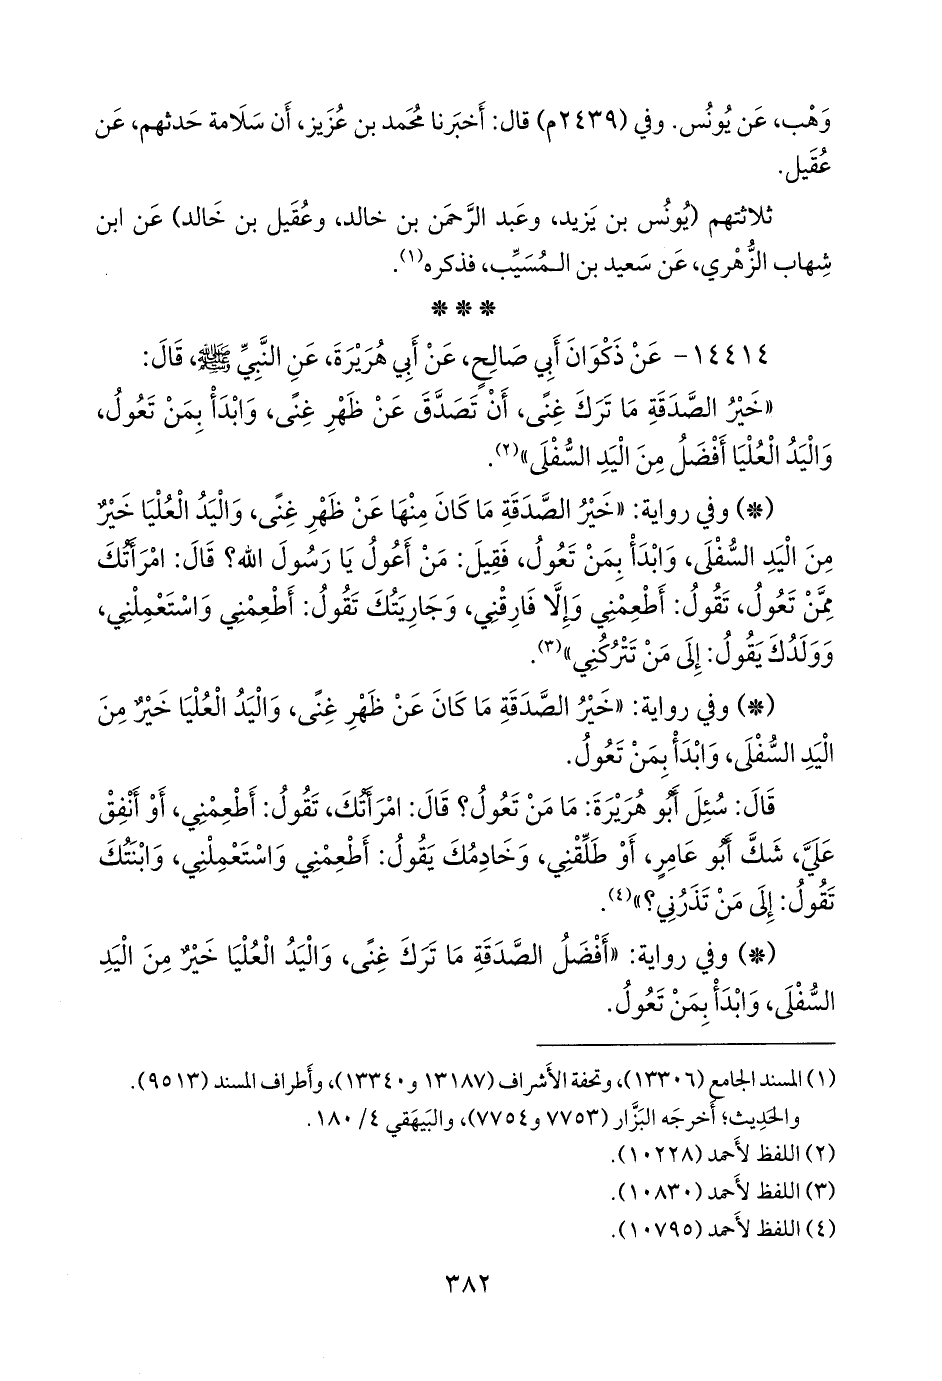 وَهْب، عَن يُونُس. وفي (٢٤٣٩م) قال: أَخبَرنا مُحمد بن عُزَيز، أَن سَلَامة حَدثهم، عَن
عُقَيل.
ثلاثتهم (يُونُس بن يَزيد، وعَبد الرَّحمَن بن خالد، وعُقَيل بن خَالد) عَن ابن
شِهاب الزُّهْري، عَن سَعيد بن الـمُسَيِّب، فذكره(١).
* * *
١٤٤١٤- عَنْ ذَكْوَانَ أَبِي صَالِحٍ، عَنْ أَبِي هُرَيْرَةَ، عَنِ النَّبِيِّ ﷺ، قَالَ:
«خَيْرُ الصَّدَقَةِ مَا تَرَكَ غِنًى، أَنْ تَصَدَّقَ عَنْ ظَهْرِ غِنًى، وَابْدَأْ بِمَنْ تَعُولُ،
وَالْيَدُ الْعُلْيَا أَفْضَلُ مِنَ الْيَدِ السُّفْلَى»(٢).
(*) وفي رواية: «خَيْرُ الصَّدَقَةِ مَا كَانَ مِنْهَا عَنْ ظَهْرِ غِنًى، وَالْيَدُ الْعُلْيَا خَيْرٌ
مِنَ الْيَدِ السُّفْلَى، وَابْدَأْ بِمَنْ تَعُولُ، فَقِيلَ: مَنْ أَعُولُ يَا رَسُولَ الله؟ قَالَ: امْرَأَتُكَ
مِمَّنْ تَعُولُ، تَقُولُ: أَطْعِمْنِي وَإِلَّا فَارِقْنِي، وَجَارِيَتُكَ تَقُولُ: أَطْعِمْنِي وَاسْتَعْمِلْنِي،
وَوَلَدُكَ يَقُولُ: إِلَى مَنْ تَتْرُكُنِي»(٣).
(*) وفي رواية: «خَيْرُ الصَّدَقَةِ مَا كَانَ عَنْ ظَهْرِ غِنًى، وَالْيَدُ الْعُلْيَا خَيْرٌ مِنَ
الْيَدِ السُّفْلَى، وَابْدَأْ بِمَنْ تَعُولُ.
قَالَ: سُئِلَ أَبُو هُرَيْرَةَ: مَا مَنْ تَعُولُ؟ قَالَ: امْرَأَتُكَ، تَقُولُ: أَطْعِمْنِي، أَوْ أَنْفِقْ
عَلَيَّ، شَكَّ أَبُو عَامِرٍ، أَوْ طَلِّقْنِي، وَخَادِمُكَ يَقُولُ: أَطْعِمْنِي وَاسْتَعْمِلْنِي، وَابْنَتُكَ
تَقُولُ: إِلَى مَنْ تَذَرُنِي؟»(٤).
(*) وفي رواية: «أَفْضَلُ الصَّدَقَةِ مَا تَرَكَ غِنًى، وَالْيَدُ الْعُلْيَا خَيْرٌ مِنَ الْيَدِ
السُّفْلَى، وَابْدَأْ بِمَنْ تَعُولُ.
(١) المسند الجامع (١٣٣٠٦)، وتحفة الأَشراف (١٣١٨٧ و١٣٣٤٠)، وأَطراف المسند (٩٥١٣).
والحَدِيث؛ أَخرجَه البَزَّار (٧٧٥٣ و٧٧٥٤)، والبَيهَقي ٤/ ١٨٠.
(٢) اللفظ لأَحمد (١٠٢٢٨).
(٣) اللفظ لأَحمد (١٠٨٣٠).
(٤) اللفظ لأَحمد (١٠٧٩٥).
٣٨٢